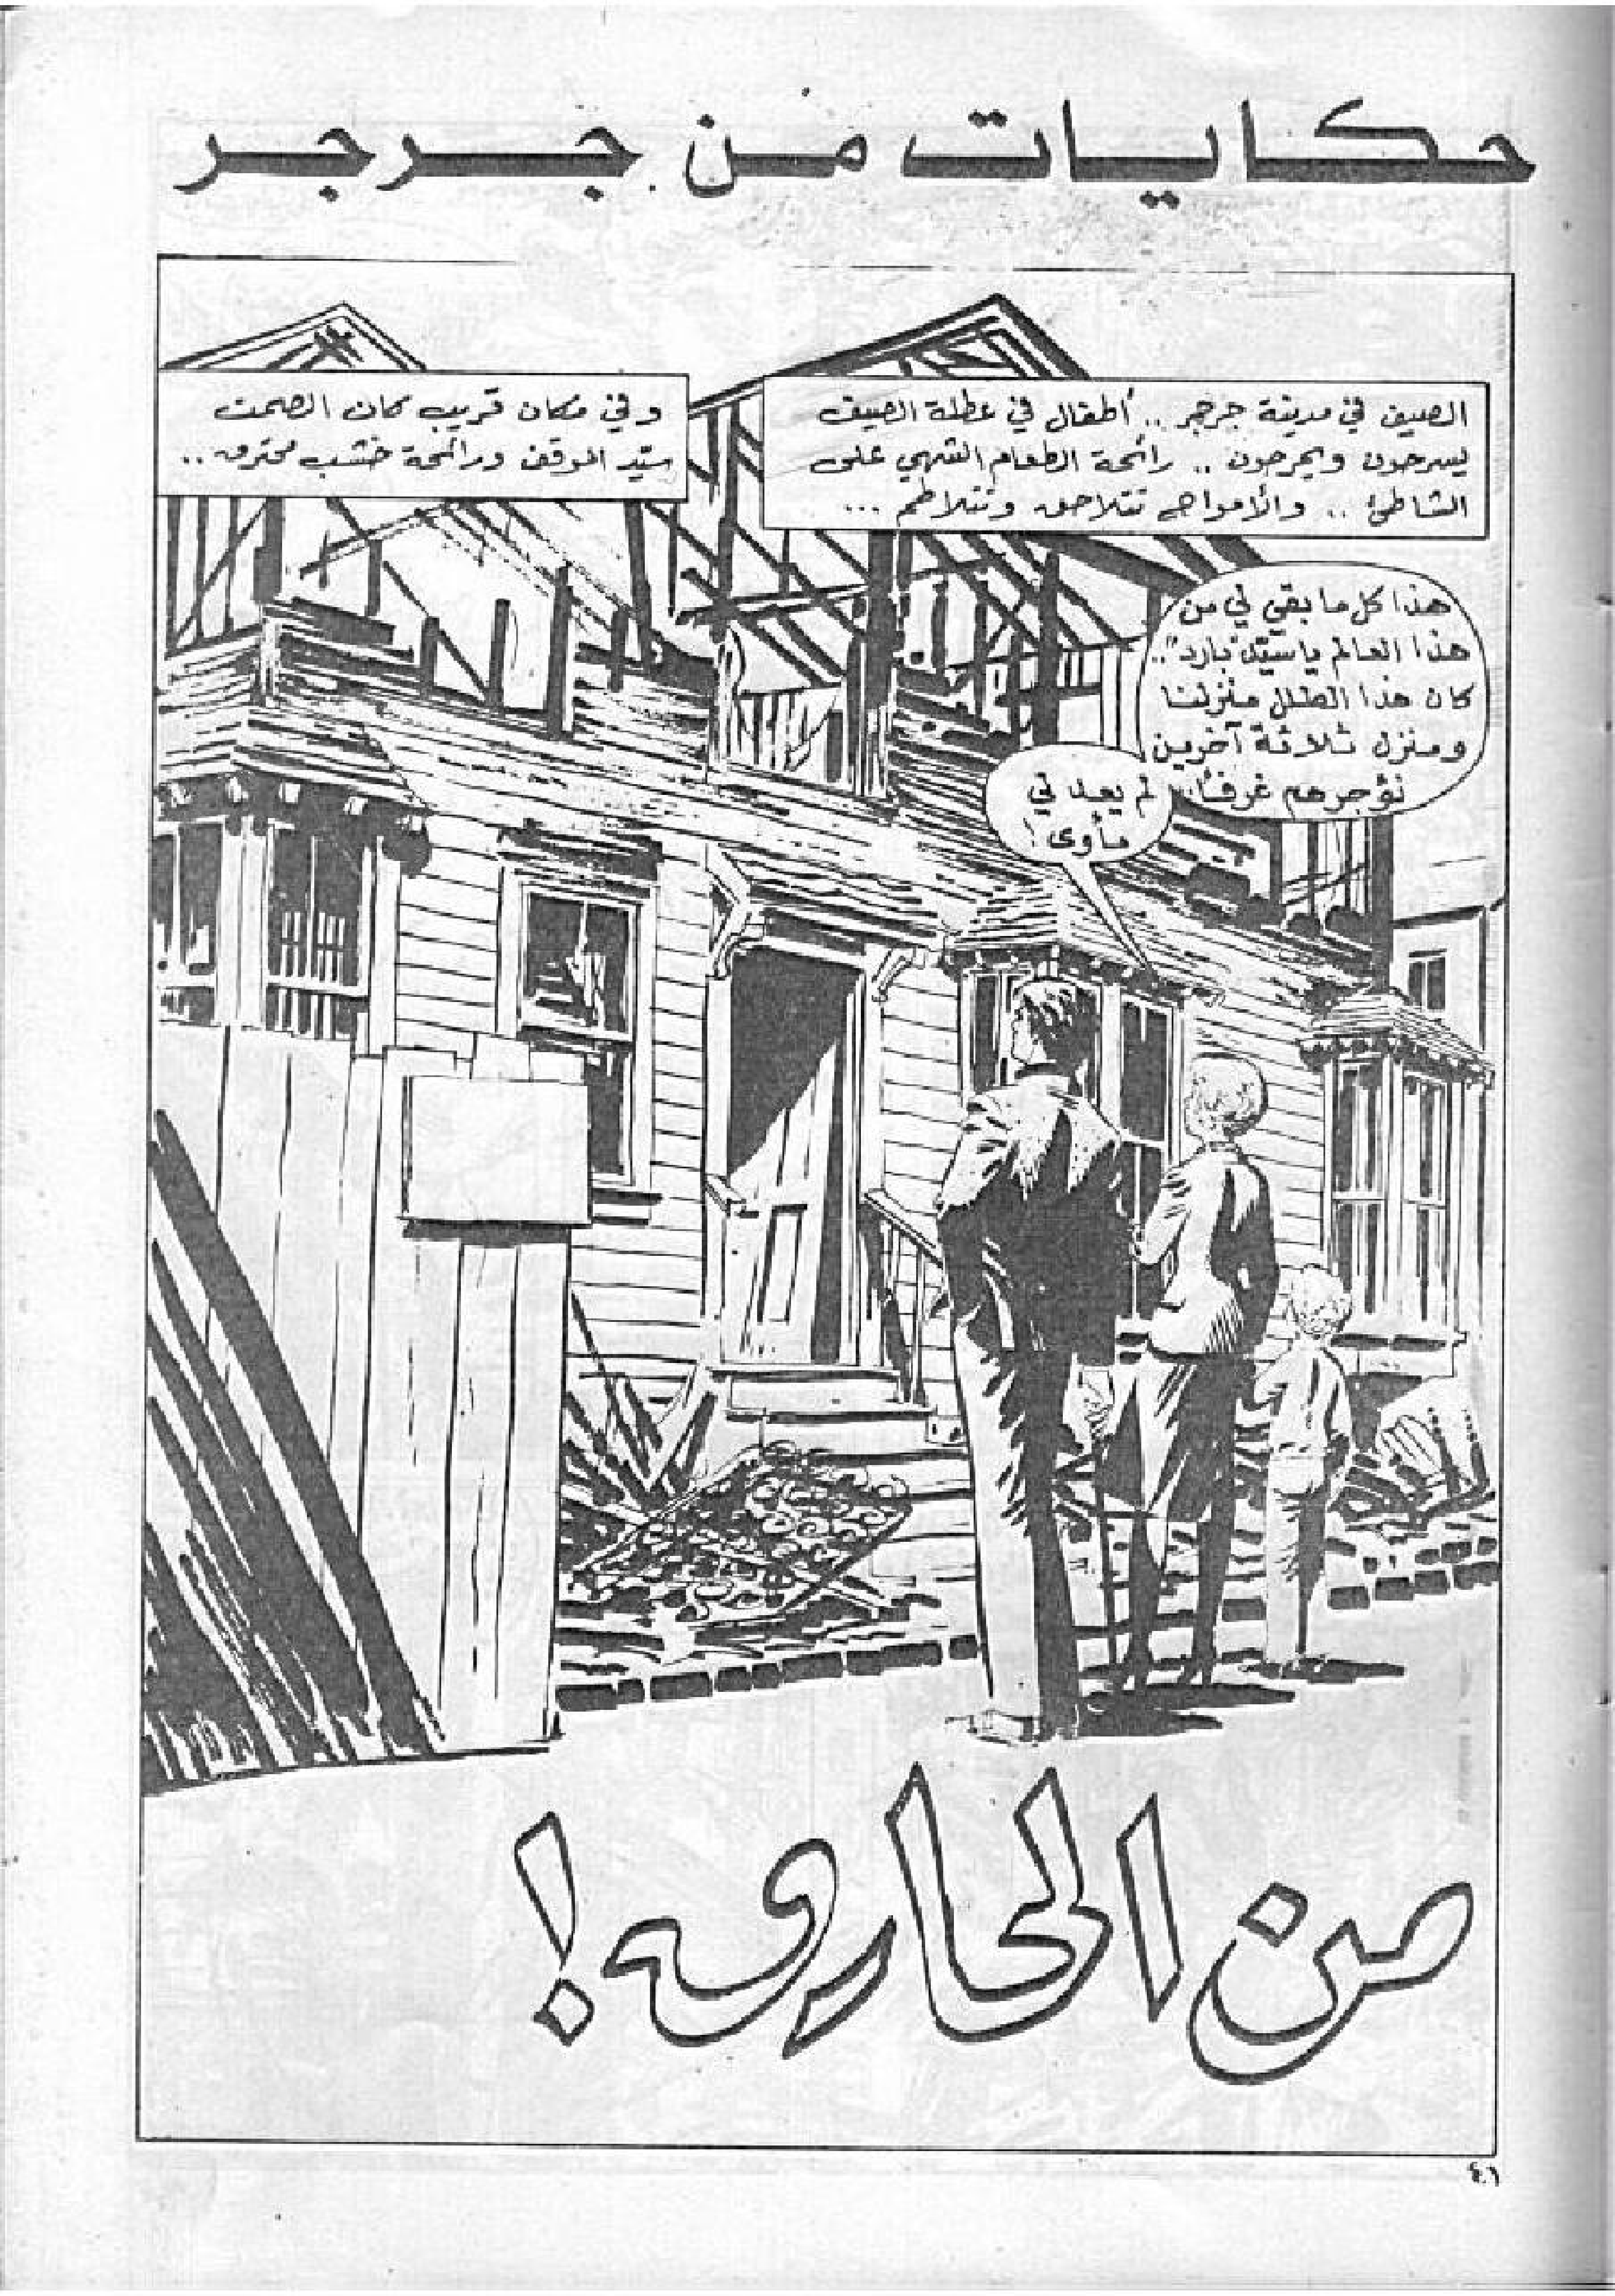 حكايات من جرجر
الصيف في مدينة جرجر .. أطفال في عطلة الصيف
يسرحون ويمرحون .. رائحة الطعام الشهي على
الشاطئ .. والأمواج تتلاحق وتتلاطم ...
وفي مكان قريب كان الصمت
سيّد الموقف ورائحة خشب محترق ..
هذا كل ما بقي لي من
هذا العالم يا سيّد "بارد" ..
كان هذا الطلل منزلنا
ومنزل ثلاثة آخرين
نؤجرهم غرفنا ..
لم يعد لي
مأوى !
من الحارق !
٤١